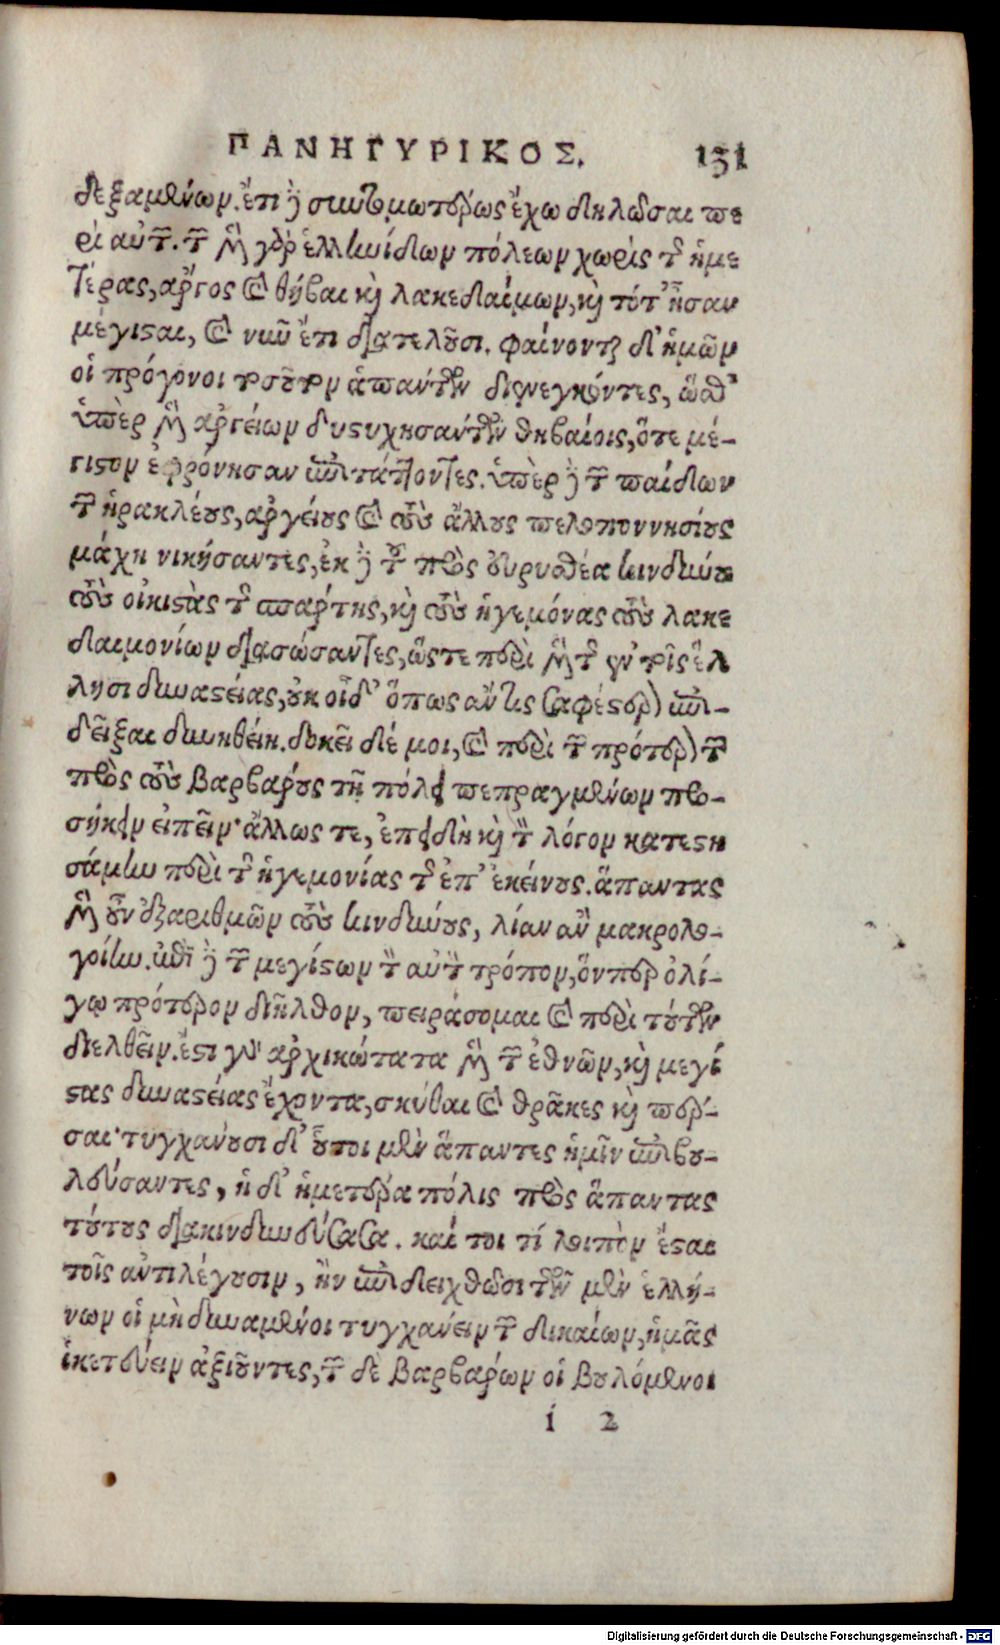 ΠΑΝΗΓΥΡΙΚΟΣ. 151
δεξαμένων. ἔτι δὲ συντομωτέρως ἔχω δηλῶσαι πε
ρὶ αὐτῶν. τῶν μὲν γὰρ ἑλληνίδων πόλεων χωρὶς τῆς ἡμε
τέρας, ἄργος καὶ θῆβαι καὶ λακεδαίμων, καὶ τότ' ἦσαν
μέγισται, καὶ νῦν ἔτι διατελοῦσι. φαίνονται δ' ἡμῶν
οἱ πρόγονοι τοσοῦτον ἁπάντων διενεγκόντες, ὥσθ'
ὑπὲρ μὲν ἀργείων δυστυχησάντων θηβαίοις, ὅτε μέ-
γιστον ἐφρόνησαν ἐπιτάττοντες. ὑπὲρ δὲ τῶν παίδων
τῶν ἡρακλέους, ἀργείους καὶ τοὺς ἄλλους πελοποννησίους
μάχη νικήσαντες, ἐκ δὲ τοῦ πρὸς εὐρυσθέα κινδύνου
τοὺς οἰκιστὰς τῆς σπάρτης, καὶ τοὺς ἡγεμόνας τοὺς λακε
δαιμονίων διασώσαντες, ὥστε περὶ μὲν τῆς ἐν τοῖς ἕλ
λησι δυναστείας, οὐκ οἶδ' ὅπως ἄν τις σαφέστερον ἐπι-
δεῖξαι δυνηθείη. δοκεῖ δέ μοι, καὶ περὶ τῶν πρότερον τῶν
πρὸς τοὺς βαρβάρους τῇ πόλει πεπραγμένων προ-
σήκειν εἰπεῖν· ἄλλως τε, ἐπειδὴ καὶ τὸν λόγον κατεστη
σάμην περὶ τῆς ἡγεμονίας τῆς ἐπ' ἐκείνους. ἅπαντας
μὲν οὖν ἐξαριθμῶν τοὺς κινδύνους, λίαν ἂν μακρολο-
γοίην. ἐπὶ δὲ τῶν μεγίστων τὸν αὐτὸν τρόπον, ὅνπερ ὀλί-
γω πρότερον διῆλθον, πειράσομαι καὶ περὶ τούτων
διελθεῖν. ἔστι γὰρ ἀρχικώτατα μὲν τῶν ἐθνῶν, καὶ μεγί
στας δυναστείας ἔχοντα, σκύθαι καὶ θρᾶκες καὶ πέρ-
σαι· τυγχάνουσι δ' οὗτοι μὲν ἅπαντες ἡμῖν ἐπιβου-
λεύσαντες, ἡ δ' ἡμετέρα πόλις πρὸς ἅπαντας
τούτους διακινδυνεύσασα. καί τοι τί λοιπὸν ἔσται
τοῖς ἀντιλέγουσιν, ἢν ἐπιδειχθῶσι τῶν μὲν ἑλλή-
νων οἱ μὴ δυνάμενοι τυγχάνειν τῶν δικαίων, ἡμᾶς
ἱκετεύειν ἀξιοῦντες, τῶν δὲ βαρβάρων οἱ βουλόμενοι
i 2
Digitalisierung gefördert durch die Deutsche Forschungsgemeinschaft - DFG